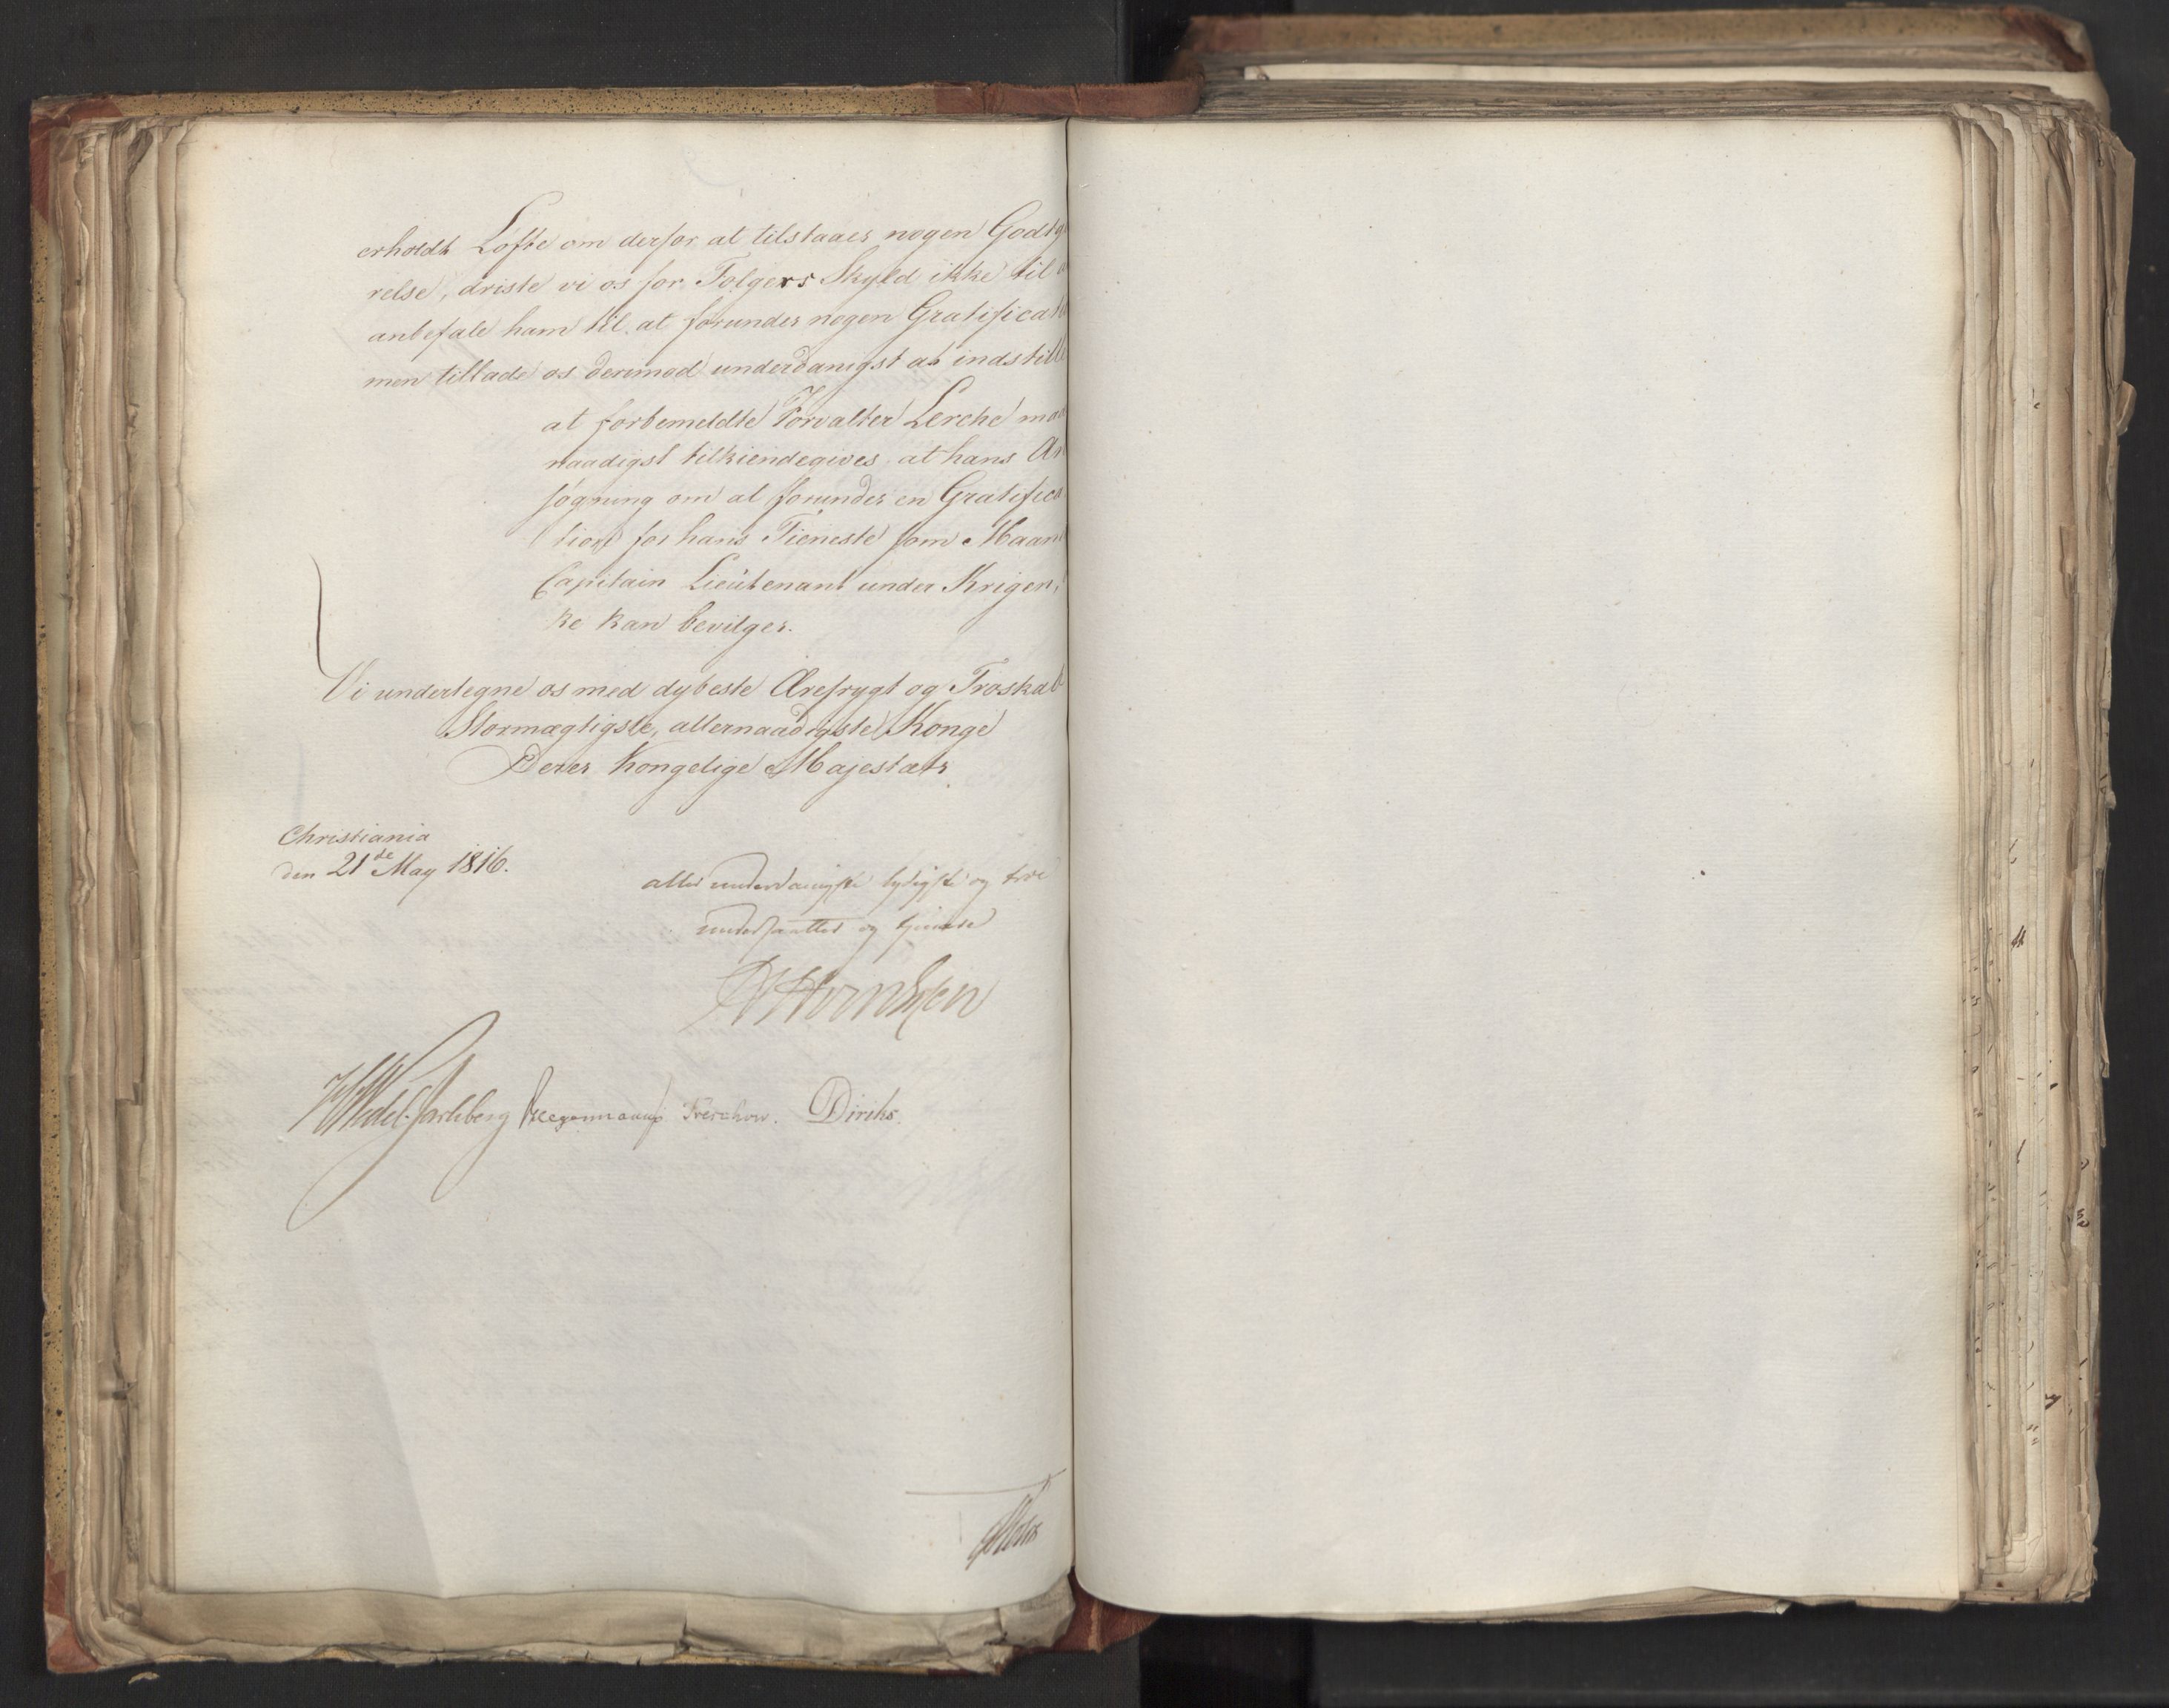 erholdt Løfte om derfor at tilstaaes nogen Godtg
relse, driste vi os for Følgers Skyld ikke til a
anbefale ham til at forundes nogen Gratificat
men tillade os derimod underdanigst at indstill
at forbemeldte Forvalter Lerche maa
naadigst tilkiendegives, at hans An
søgning om at forundes en Gratifica
tion for hans Tieneste som Maan
Capitain Lieutenant under Krigen,
ke kan bevilges.
Vi undertegne os med dybeste Ærefrygt og Troskab
Stormægtigste, allernaadigste Konge
Deres Kongelige Majestæts
Christiania
den 21de May 1816.
allerunderdanigste lydigste og troe
undersaatter og tjenere
Hornsten
Wedel-Jarlsberg Hegermann Krerchow. Diriks.